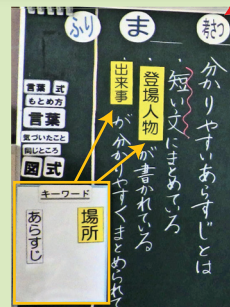 考さつ
ま
ふり
分かりやすいあらすじとは
・短い文にまとめている
・登場人物が書かれている
・出来事が分かりやすくまとめられて
言葉
式
もとめ方
言葉
気づいたこと
同じところ
図式
キーワード
場所
あらすじ